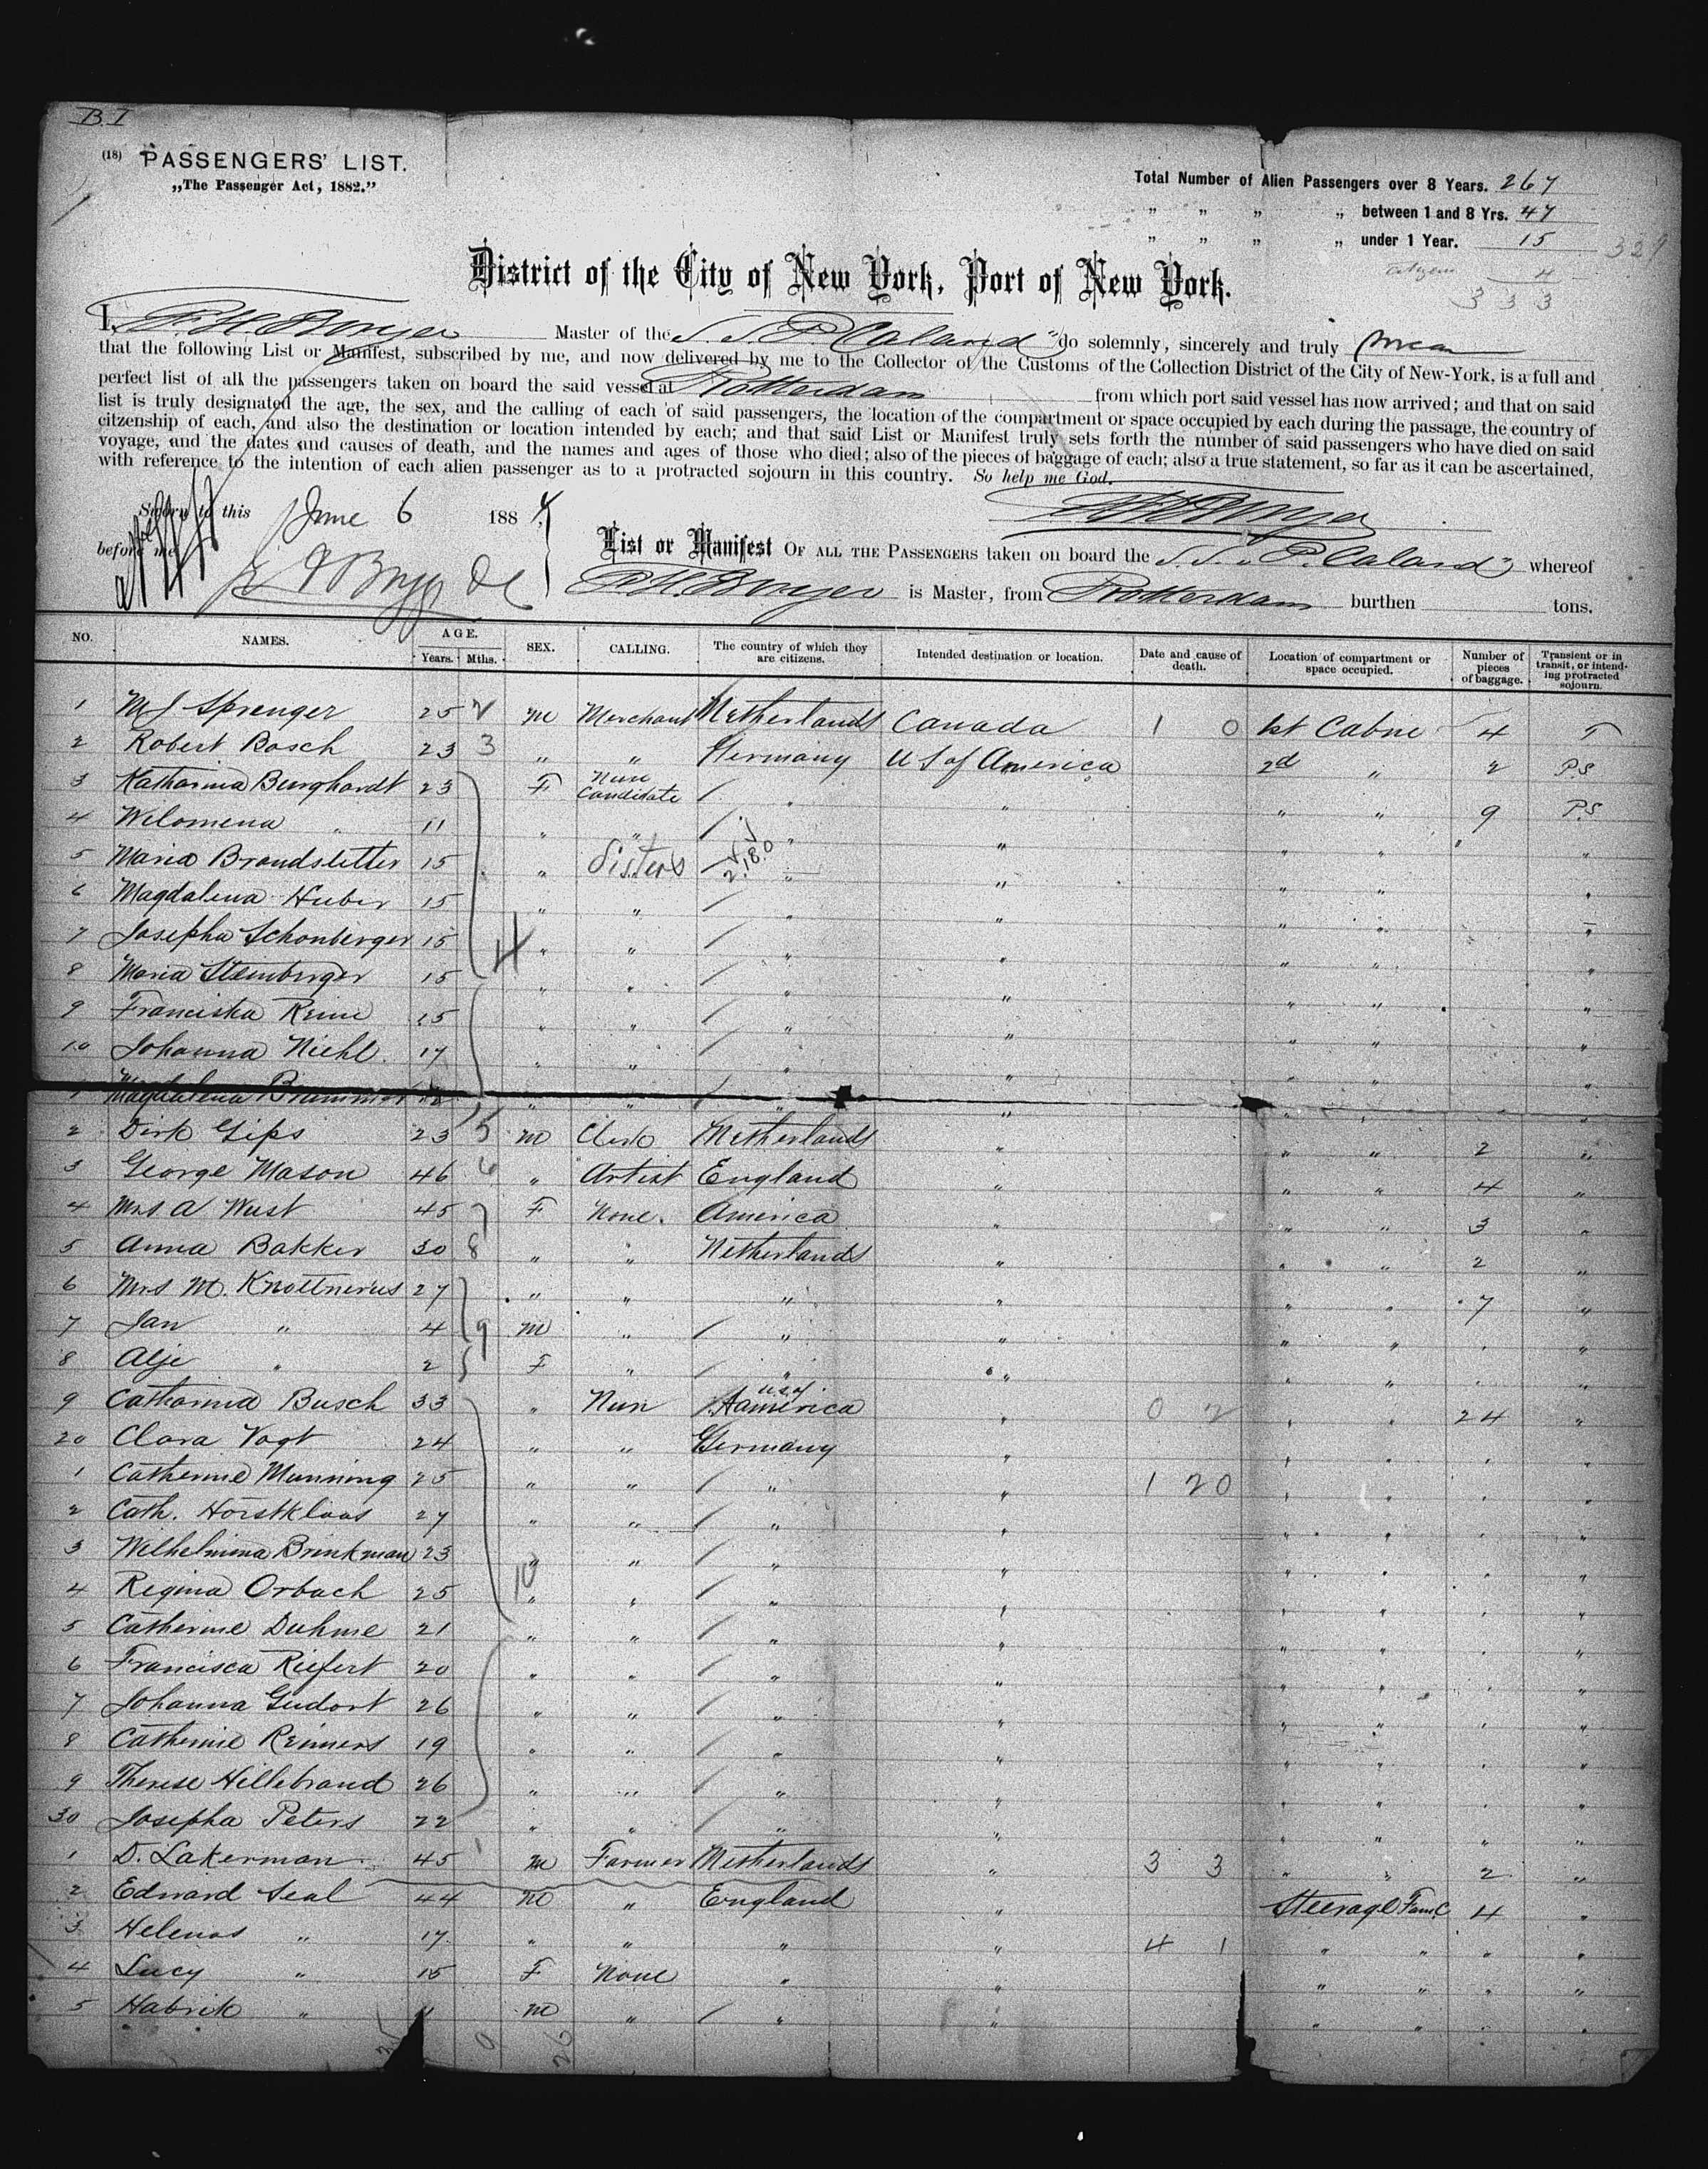 B.I
(18) PASSENGERS' LIST.
„The Passenger Act, 1882."
Total Number of Alien Passengers over 8 Years. 267
„ „ „ „ between 1 and 8 Yrs. 47
„ „ „ „ under 1 Year. 15 329
citizens 4
333
District of the City of New York, Port of New York.
I, Master of the S.S. "P. Caland" do solemnly, sincerely and truly swear
that the following List or Manifest, subscribed by me, and now delivered by me to the Collector of the Customs of the Collection District of the City of New-York, is a full and
perfect list of all the passengers taken on board the said vessel at Rotterdam from which port said vessel has now arrived; and that on said
list is truly designated the age, the sex, and the calling of each of said passengers, the location of the compartment or space occupied by each during the passage, the country of
citzenship of each, and also the destination or location intended by each; and that said List or Manifest truly sets forth the number of said passengers who have died on said
voyage, and the dates and causes of death, and the names and ages of those who died; also of the pieces of baggage of each; also a true statement, so far as it can be ascertained,
with reference to the intention of each alien passenger as to a protracted sojourn in this country. So help me God.
Sworn to this June 6 1884
before me
List or Manifest OF ALL THE PASSENGERS taken on board the S.S. "P. Caland" whereof
is Master, from Rotterdam burthen tons.
NO. NAMES. AGE. Years. Mths. SEX. CALLING. The country of which they are citizens. Intended destination or location. Date and cause of death. Location of compartment or space occupied. Number of pieces of baggage. Transient or in transit, or intending protracted sojourn.
1 M J Sprenger 25 2 m Merchant Netherlands Canada 1 0 1st Cabine 4 T
2 Robert Bosch 23 3 „ „ Germany U S of America 2d „ 2 P.S
3 Katharina Burghardt 23 F Nun Candidate „ „ „ „ 9 P.S
4 Wilomena „ 11 „ „ „ „ „ „ „ „
5 Maria Brandstetter 15 „ Sisters „ „ „ „ „
6 Magdalena Huber 15 „ „ „ „ „ „ „
7 Josepha Schonberger 15 4 „ „ „ „ „ „ „
8 Maria Steinberger 15 „ „ „ „ „ „ „
9 Franciska Reine 15 „ „ „ „ „ „ „
10 Johanna Niehl 17 „ „ „ „ „ „ „
1 Magdalena Brummer „ „ „ „ „ „ „
2 Dirk Gips 23 5 m Clerk Netherlands „ „ „ 2 „
3 George Mason 46 6 „ Artist England „ „ „ 4 „
4 Mrs A West 45 7 F None. America „ „ „ 3 „
5 Anna Bakker 30 8 „ „ Netherlands „ „ „ 2 „
6 Mrs M. Knottnerus 27 „ „ „ „ „ „ 7 „
7 Jan „ 4 9 m „ „ „ „ „ „
8 Alje „ 2 F „ „ „ „ „ „
9 Catharina Busch 33 „ Nun U.S of America „ 0 2 „ „ 24 „
20 Clara Vogt 24 „ „ Germany „ „ „ „ „
1 Catherine Munning 25 „ „ „ „ 1 20 „ „ „ „
2 Cath. Horstklaas 27 „ „ „ „ „ „ „ „
3 Wilhelmina Brinkman 23 „ „ „ „ „ „ „ „
4 Regina Orbach 25 10 „ „ „ „ „ „ „ „
5 Catherine Duhme 21 „ „ „ „ „ „ „ „
6 Francisca Riefert 20 „ „ „ „ „ „ „ „
7 Johanna Gudort 26 „ „ „ „ „ „ „ „
8 Catherine Reimers 19 „ „ „ „ „ „ „ „
9 Therese Hillebrand 26 „ „ „ „ „ „ „ „
30 Josepha Peters 22 „ „ „ „ „ „ „ „
1 D. Lakerman 45 1 m Farmer Netherlands „ 3 3 „ „ 2 „
2 Edward Seal 44 m „ England „ Steerage 4 „
3 Helenas „ 17 „ „ „ „ 4 1 „ „ „ „
4 Lucy „ 15 F None „ „ „ „ „ „
5 Habrik „ m „ „ „ „ „ „ „